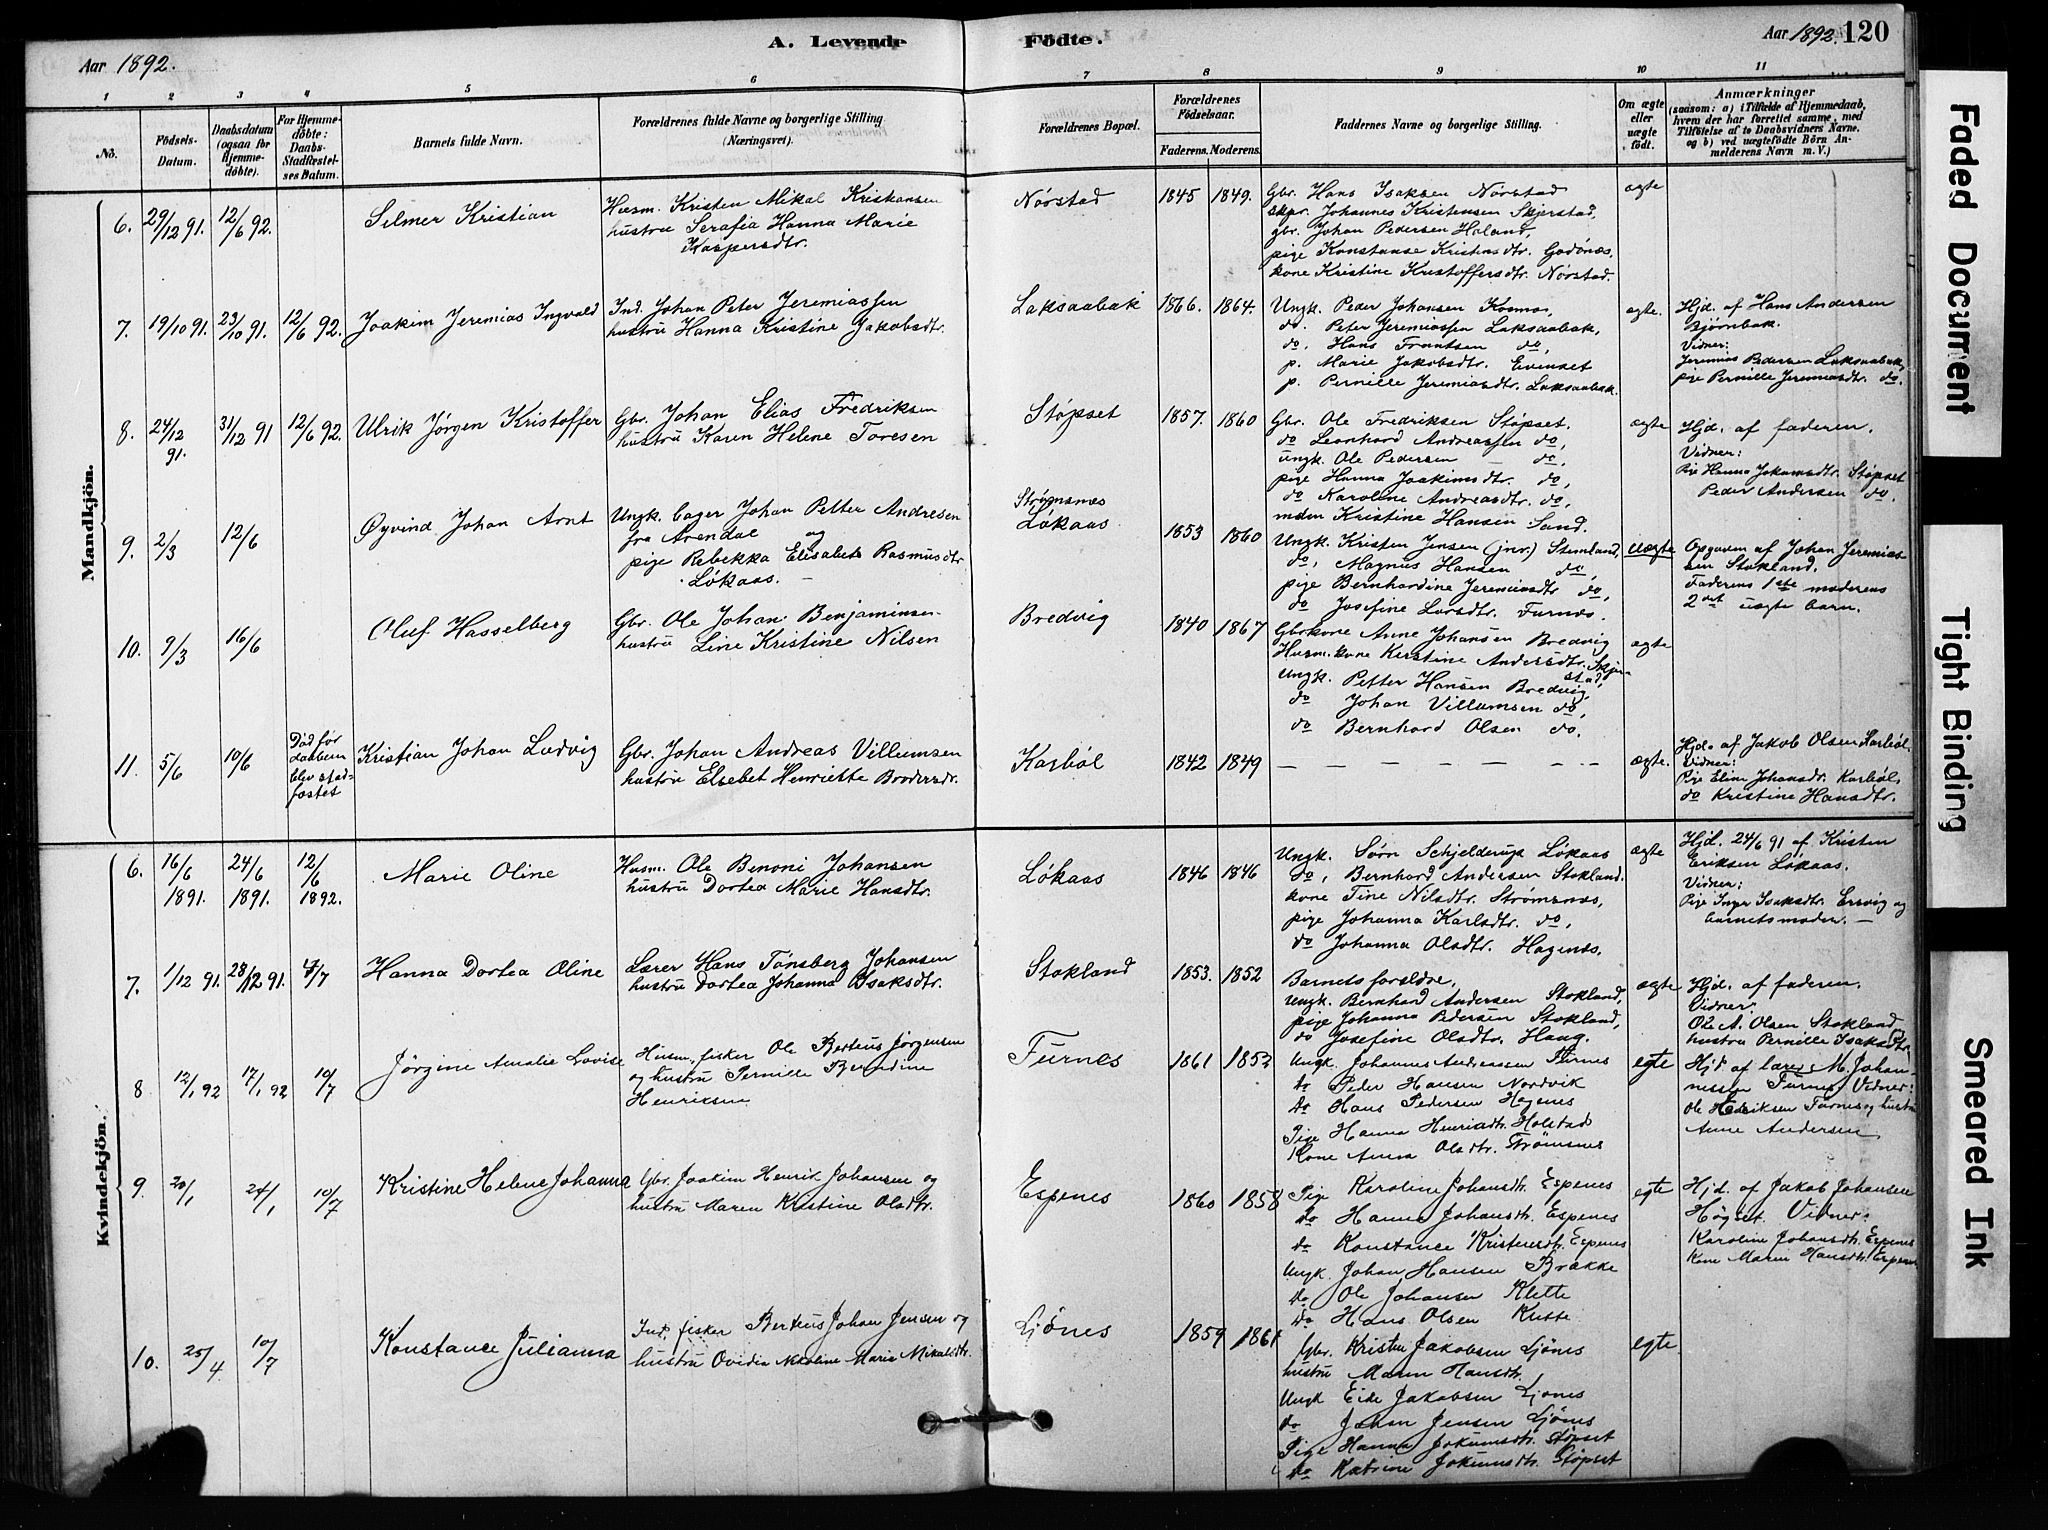 Aar 1892.
A. Levende
Födte.
Aar 1892. 120
1 2 3 4 5 6 7 8 9 10 11
No.
Födsels-Datum.
Daabsdatum (ogsaa for Hjemme-döbte).
For Hjemme-döbte: Daabs-Stadfæstel-ses Datum.
Barnets fulde Navn.
Forældrenes fulde Navne og borgerlige Stilling (Næringsvei).
Forældrenes Bopæl.
Forældrenes Födselsaar.
Faderens. Moderens.
Faddernes Navne og borgerlige Stilling.
Om ægte eller uægte födt.
Anmærkninger
(saasom: a) i Tilfælde af Hjemmedaab,
hvem der har forrettet samme, med
Tilföielse af to Daabsvidners Navne,
og b) ved uægtefödte Börn An-
melderens Navn m. V.)
Mandkjön.
6. 29/12 91. 12/6 92. Selmer Kristian
Husm. Kristen Mikal Kristiansen
hustru Serafia Hanna Marie
Kaspersdtr.
Nørstad 1845 1849.
Gbr. Hans Isaksen Nørstad
skpr. Johannes Kristensen Skjerstad,
gbr. Johan Pedersen Høland,
pige Konstanse Kristiansdtr. Godönæs,
kone Kristine Kristoffersdtr. Nörstad.
ægte
7. 19/10 91. 23/10 91. 12/6 92. Joakim Jeremias Ingvald
Ind. Johan Peter Jeremiassen
hustru Hanna Kristine Jakobsdtr.
Laksaabak 1866. 1864.
Ungk. Peder Johansen Kosmo,
do. Peter Jeremiassen Laksaabak,
do. Hans Frantsen do,
p. Marie Jakobsdtr. Evenset
p. Pernille Jeremiasdtr. Laksaabak.
ægte.
Hjd. af Hans Andersen
Bjørnbak.
Vidner:
Jeremias Pedersen Laksaabak,
pige Pernille Jeremiasdtr. do.
8. 24/12 91. 31/12 91 12/6 92. Ulrik Jørgen Kristoffer
Gbr. Johan Elias Fredriksen
hustru Karen Helene Toresen
Støpset 1857. 1860
Gbr. Ole Fredriksen Støpset.
do Leonhard Andreassen do,
ungk. Ole Pedersen - do.
pige Hanna Joakimsdtr. do,
do Karoline Andreasdtr. do,
mden Kristine Hansen Sand.
ægte
Hjd. af faderen.
Vidner:
Pige Hanna Jokumsdtr. Støpset
Peder Andersen do.
9. 2/3 12/6 Øyvind Johan Arnt
Ungk. Cager Johan Petter Andresen
fra Arendal og
pige Rebekka Elisabeth Rasmusdtr.
Løkaas.
Strømsnæs
Løkaas 1853 1860
Ungk. Kristen Jensen (jnr.) Stemland,
do, Magnus Hansen do,
pige Bernhardine Jeremiasdtr do,
do Josefine Larsdtr. Furnæs.
uægte
Opgaven af Johan Jeremias-
sen Stokland.
Faderens 1ste moderens
2det uægte barn.
10. 9/3 16/6 Oluf Hasselberg
Gbr. Ole Johan Benjaminsen
hustru Line Kristine Nilsen
Bredvig 1840 1867
Gbrkone Anne Johansen Bredvig
Husm.kone Kerstine Andersdtr. Skjer-
stad,
Ungk. Petter Hansen Bredvig,
do Johan Villumsen do,
do Bernhard Olsen do.
ægte
11. 5/6 10/6 Död för
daaben
blev stad-
fæstet
Kristian Johan Ludvig
Gbr. Johan Andreas Villumsen
hustru Elsebet Henriette Brodersdtr.
Karböl 1842 1849
— — — — — — —
ægte.
Hjd. af Jakob Olsen Karböl,
Vidner:
Pige Eline Johansdtr. Karböl,
do Kristine Hansdtr.
Kvindekjön.
6. 16/6 1891. 24/6 1891. 12/6 1892. Marie Oline
Husm. Ole Benoni Johansen
hustru Dortea Marie Hansdtr.
Løkaas 1846 1846
Ungk. Sørn Schjelderup Løkaas
do, Bernhard Andersen Stokland.
kone Tine Nilsdtr. Strømsnæs,
pige Johanna Karlsdtr. do,
do Johanna Olsdtr. Hagenæs.
ægte
Hjd. 24/6 91 af Kristen
Eriksen Løkaas.
Vidner:
Pige Inger Isaksdtr. Ersvig og
barnets moder. —
7. 1/12 91. 28/12 91. 4/7 Hanna Dortea Oline
Lærer Hans Tønsberg Johansen
hustru Dortea Johanna Isaksdtr.
Stokland 1853. 1852
Barnets forældre,
Ungk. Bernhard Andersen Stokland,
pige Johanna Pedersen Stokland,
do Josefine Olsdtr. Haug.
ægte
Hjd. af faderen.
Vidner:
Ole A. Olsen Stokland
hustru Pernille Isaksdtr.
8 12/1 92 17/1 92 10/7 Jörgine Amalie Lovise
Husm. fisker Ole Berteus Jörgensen
og hustru Pernille Berndine
Henriksen
Furnes 1861 1852
Ungk. Johannes Andreassen Furnes
do Peder Hansen Nordvik
do Hans Pedersen Hagenes
Pige Hanna Henriksdtr. Holstad
Kone Anna Olsdtr. Strömsnes
egte
Hjd. af lærer M. Johan-
nessen Furnes. Vidner:
Ole Hendriksen Furnes og hustru
Anne Andersen
9. 20/1 24/1 10/7 Kristine Helene Johanna
Gbr. Joakim Henrik Johansen og
hustru Maren Kristine Olsdtr.
Espenes 1860 1858
Pige Karoline Johansdtr. Espenes
do Hanna Johansdtr. Espenes
do Konstance Kristensdtr. Espenes
Ungk. Johan Hansen Brække
do Ole Johansen Klette
do Hans Olsen Klette
egte
Hjd. af Jakob Johansen
Høgset. Vidner:
Karoline Johansdtr. Espenes
Kone Maren Hansdtr. Espenes
10. 25/4 10/7 Konstance Julianna
Ind. fisker Berteus Johan Jensen og
hustru Ovidia Nikoline Marie Mikalsdtr.
Ljönes 1859 1861
Gbr. Kristen Jakobsen Ljönes
hustru Maren Hansdtr.
Ungk Eide Jakobsen Ljönes
do Johan Jensen Ljönes
Pige Hanna Jokumsdtr. Stöpset
do Katrine Jokumsdtr. Stöpset
egte
Faded Document
Tight Binding
Smeared Ink